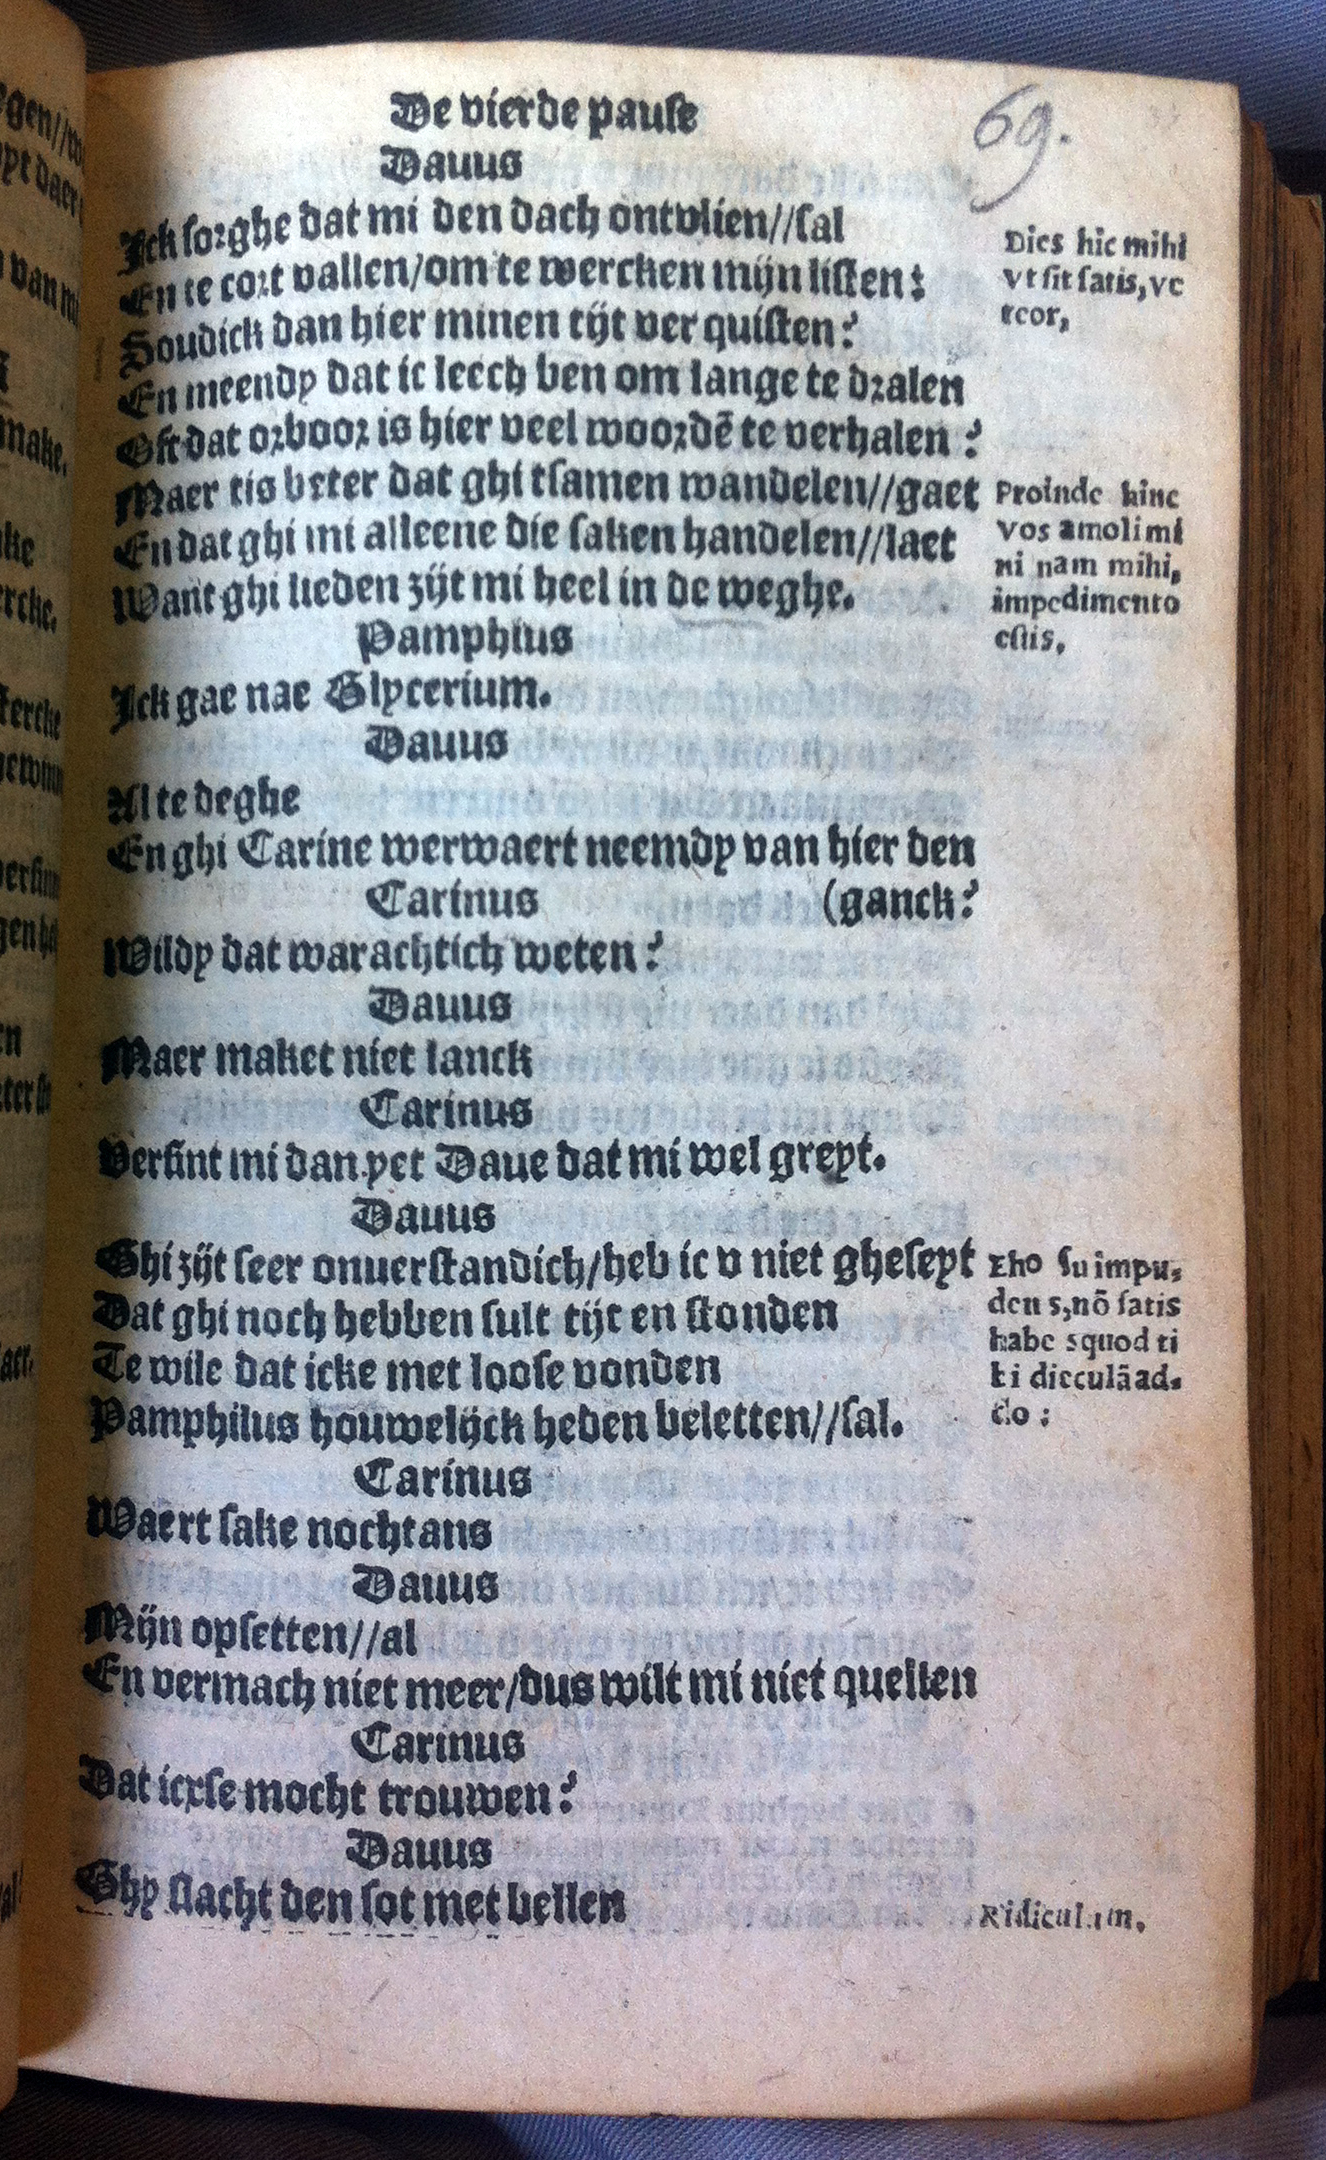 De vierde pause
69.
Dauus
Ick sorghe dat mi den dach ontvlien//sal
En te cort vallen/om te wercken mijn listen:
Soudick dan hier minen tijt ver quisten?
En meendy dat ic leech ben om lange te dralen
Oft dat orboor is hier veel woordē te verhalen?
Maer tis beter dat ghi tsamen wandelen//gaet
En dat ghi mi alleene die saken handelen//laet
Want ghi lieden zijt mi heel in de weghe.
Dies hic mihi
vt sit satis, ve
reor,
Proinde hinc
vos amolimi
ni nam mihi,
impedimento
estis,
Pamphius
Ick gae nae Glycerium.
Dauus
Al te deghe
En ghi Carine werwaert neemdy van hier den
(ganck?
Carinus
Wildy dat warachtich weten?
Dauus
Maer maket niet lanck
Carinus
Versint mi dan yet Daue dat mi wel greyt.
Dauus
Ghi zijt seer onuerstandich/heb ic v niet gheseyt
Dat ghi noch hebben sult tijt en stonden
Te wile dat icke met loose vonden
Pamphilus houwelijck heden beletten//sal.
Eho su impu,
den s, nō satis
habe squod ti
bi dicculā ad,
do:
Carinus
Waert sake nochtans
Dauus
Mijn opsetten//al
En vermach niet meer/dus wilt mi niet quellen
Carinus
Dat icxse mocht trouwen?
Dauus
Ghy slacht den sot met bellen
Ridiculum.